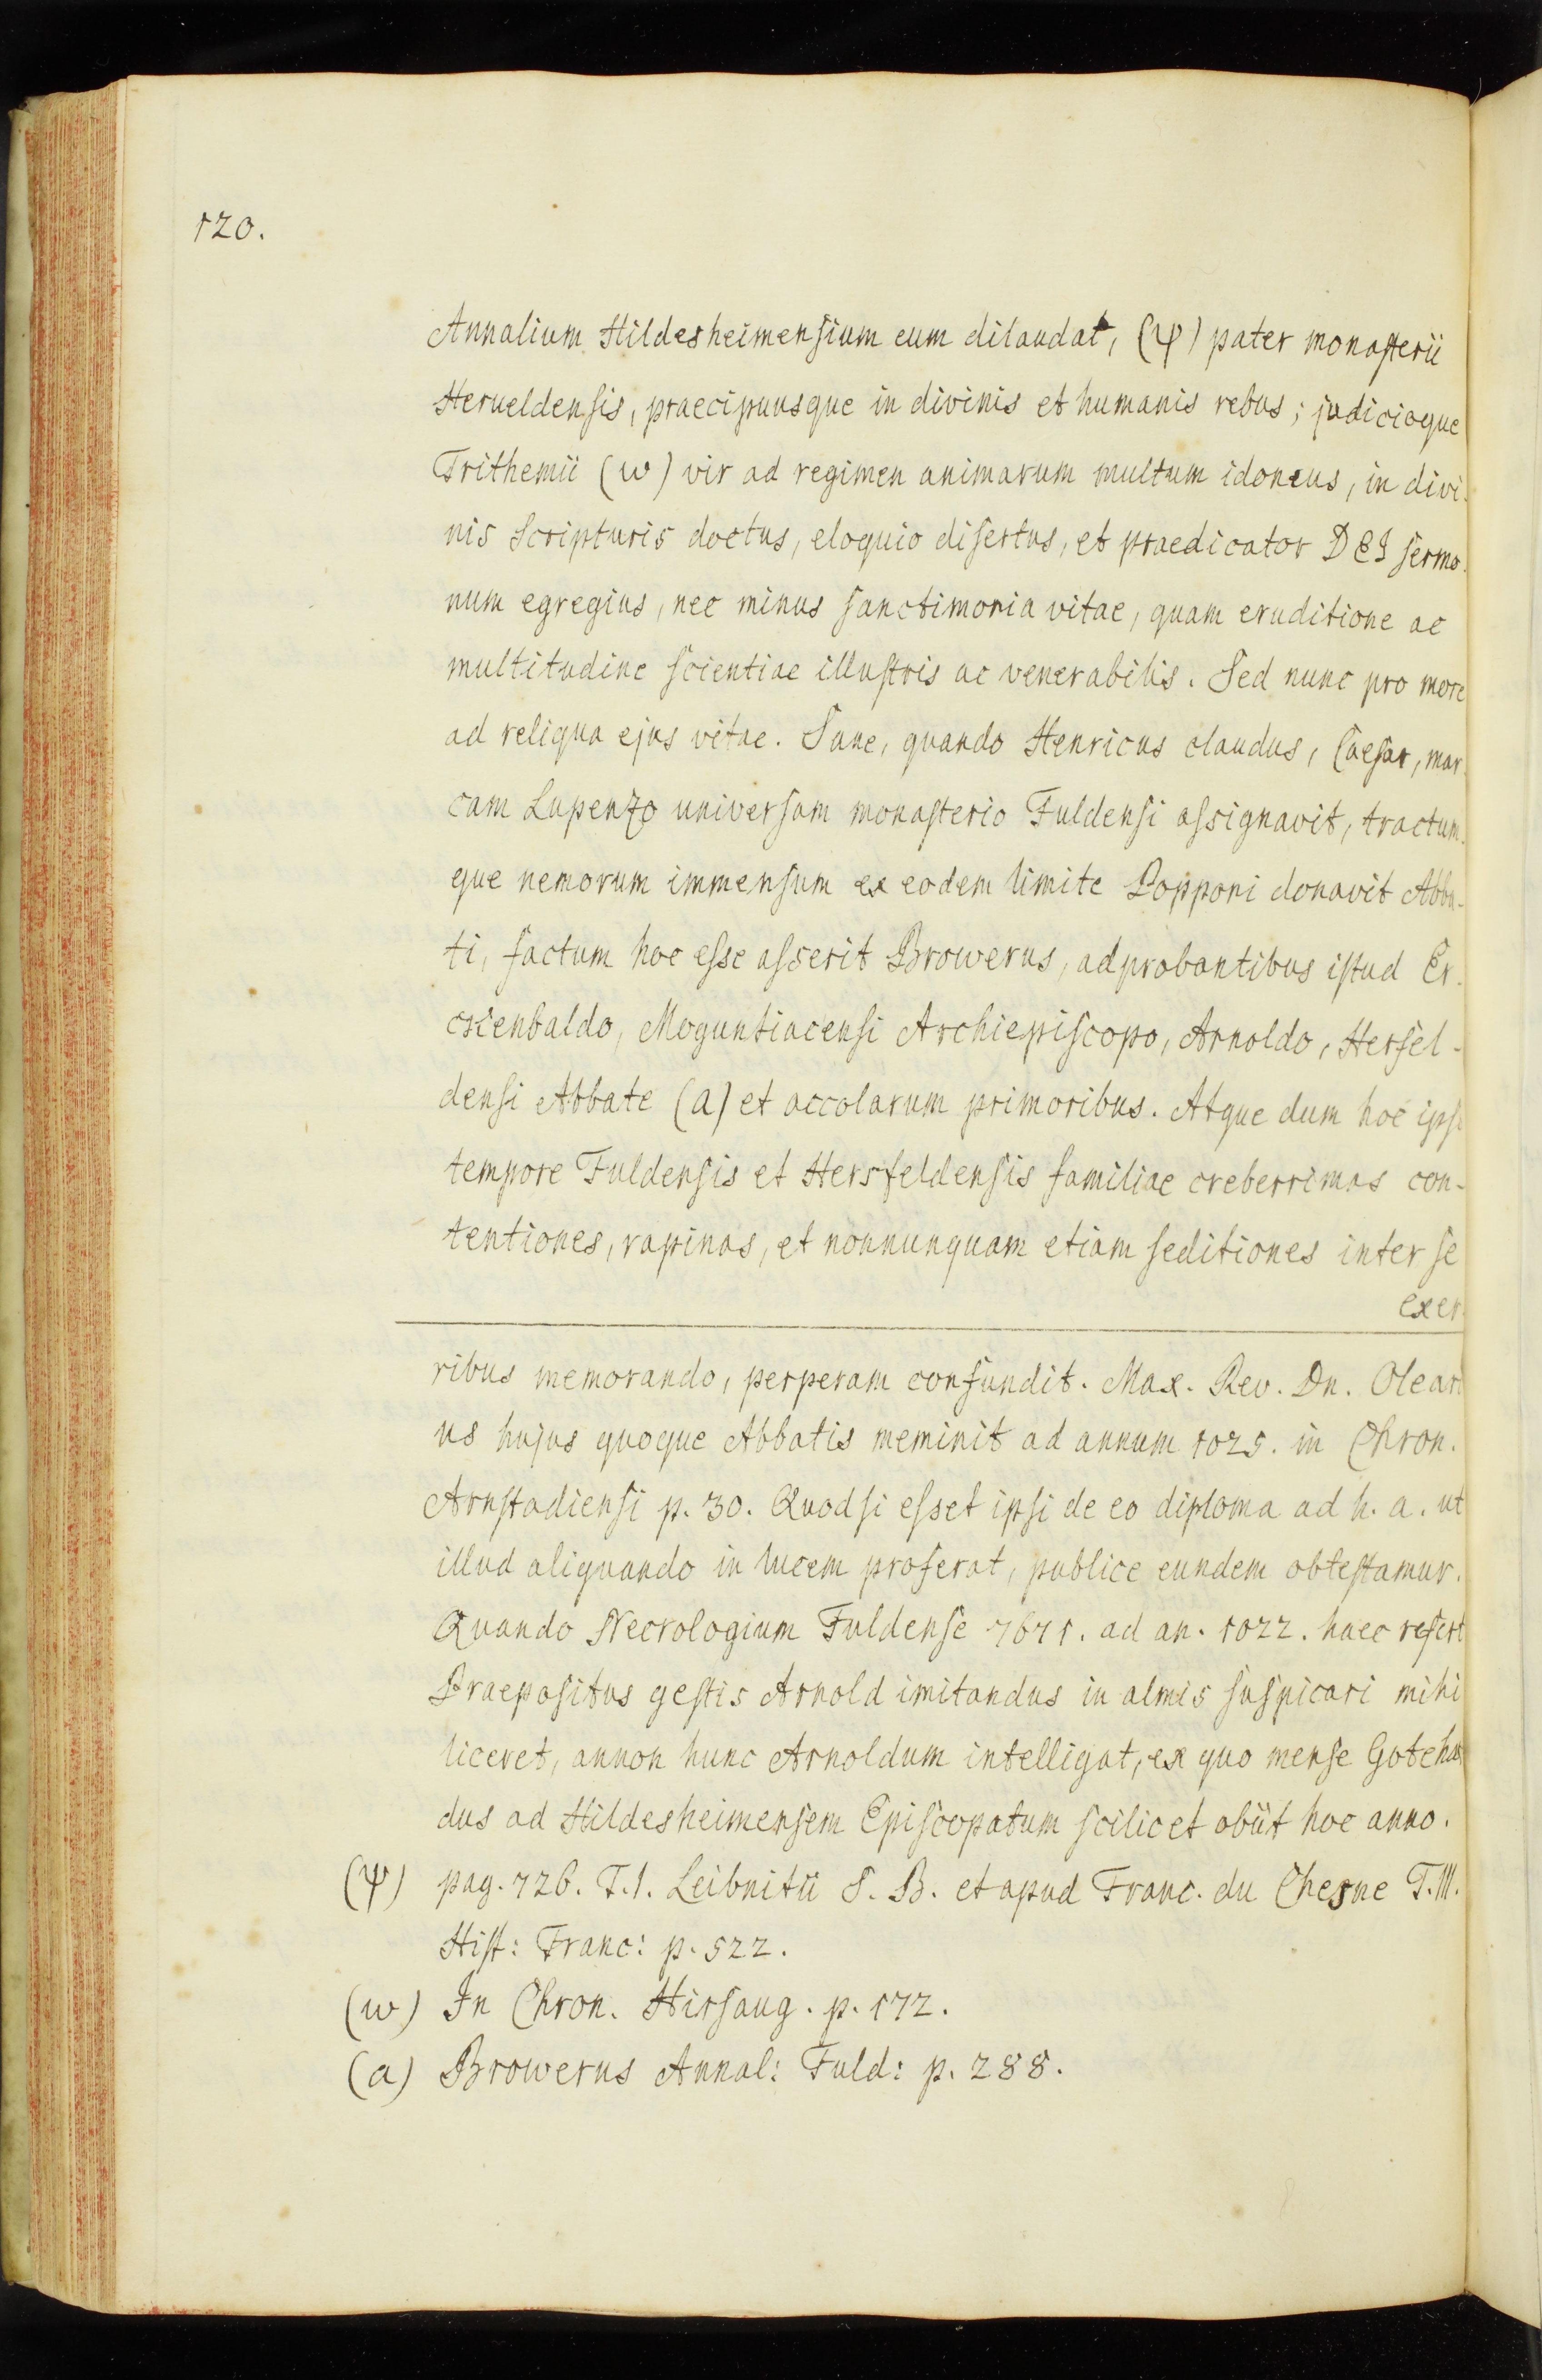 120.
Annalium Hildesheimensium eum dilaudat, (ψ) pater monasterii
Herueldensis, praecipuusque in divinis et humanis rebus; judicioque
Trithemii (ω) vir ad regimen animarum multum idoneus, in divi-
nis Scripturis doctus, eloquio disertus, et praedicator DEI sermo-
num egregius, nec minus sanctimonia vitae, quam eruditione ac
multitudine scientiae illustris ac venerabilis. Sed nunc pro more
ad reliqua ejus vitae. Sane, quando Henricus claudus, Caesar, mar-
cam Lupenzo universam monasterio Fuldensi assignavit, tractum-
que nemorum immensum ex eodem limite Popponi donavit Abba-
ti, factum hoc esse asserit Browerus, adprobantibus istud Er-
ckenbaldo, Moguntiacensi Archiepiscopo, Arnoldo, Hersfel-
densi Abbate (a) et accolarum primoribus. Atque dum hoc ipso
tempore Fuldensis et Hersfeldensis familiae creberrimas con-
tentiones, rapinas, et nonnunquam etiam seditiones inter se
exer-
ribus memorando, perperam confundit. Max. Rev. Dn. Oleari
us hujus quoque Abbatis meminit ad annum 1025. in Chron.
Arnstadiensi p. 30. Quodsi esset ipsi de eo diploma ad h. a. ut
illud aliquando in lucem proferat, publice eundem obtestamur.
Quando Necrologium Fuldense 7671. ad an. 1022. haec refert
Praepositus gestis Arnold imitandus in almis suspicari mihi
liceret, annon hunc Arnoldum intelligat, ex quo mense Gotehar
dus ad Hildesheimensem Episcopatum scilicet obiit hoc anno.
(ψ) pag. 726. T.I. Leibnitii S. B. et apud Franc. du Chesne T.III.
Hist: Franc: p. 522.
(ω) In Chron. Hirsaug. p. 172.
(a) Browerus Annal: Fuld: p. 288.